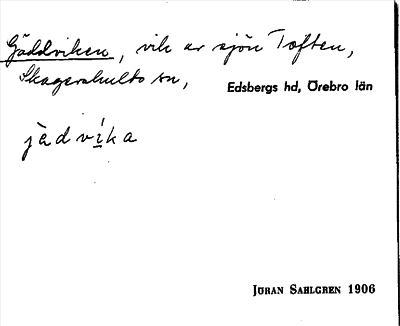 Gäddviken, vik av sjön Toften,
Skagershults sn, Edsbergs hd, Örebro län
jè̀dví̲ka
JÖRAN SAHLGREN 1906